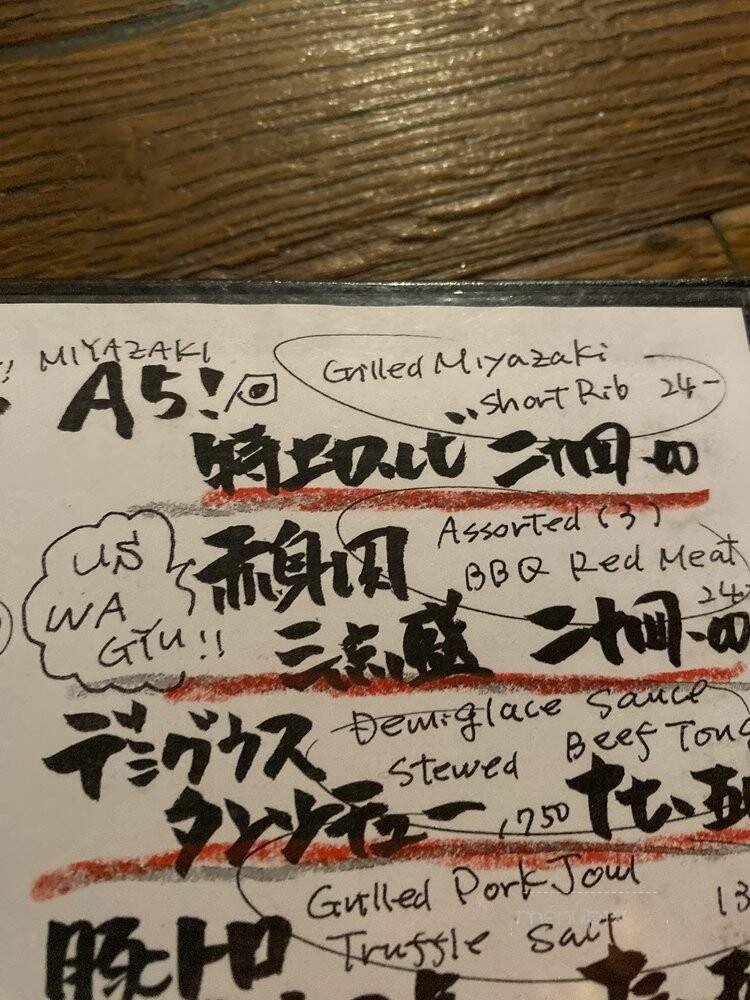 MIYAZAKI
A5!
Grilled Miyazaki
short Rib 24-
特上カルビ 二十四.00
US
WA
GYU!!
Assorted (3)
BBQ Red Meat
24-
赤身肉
三点盛 二十四.00
Demiglace Sauce
Stewed Beef Tong
デミグラス
タンシチュー 750
Grilled Pork Jowl
Truffle Salt
13
豚トロ